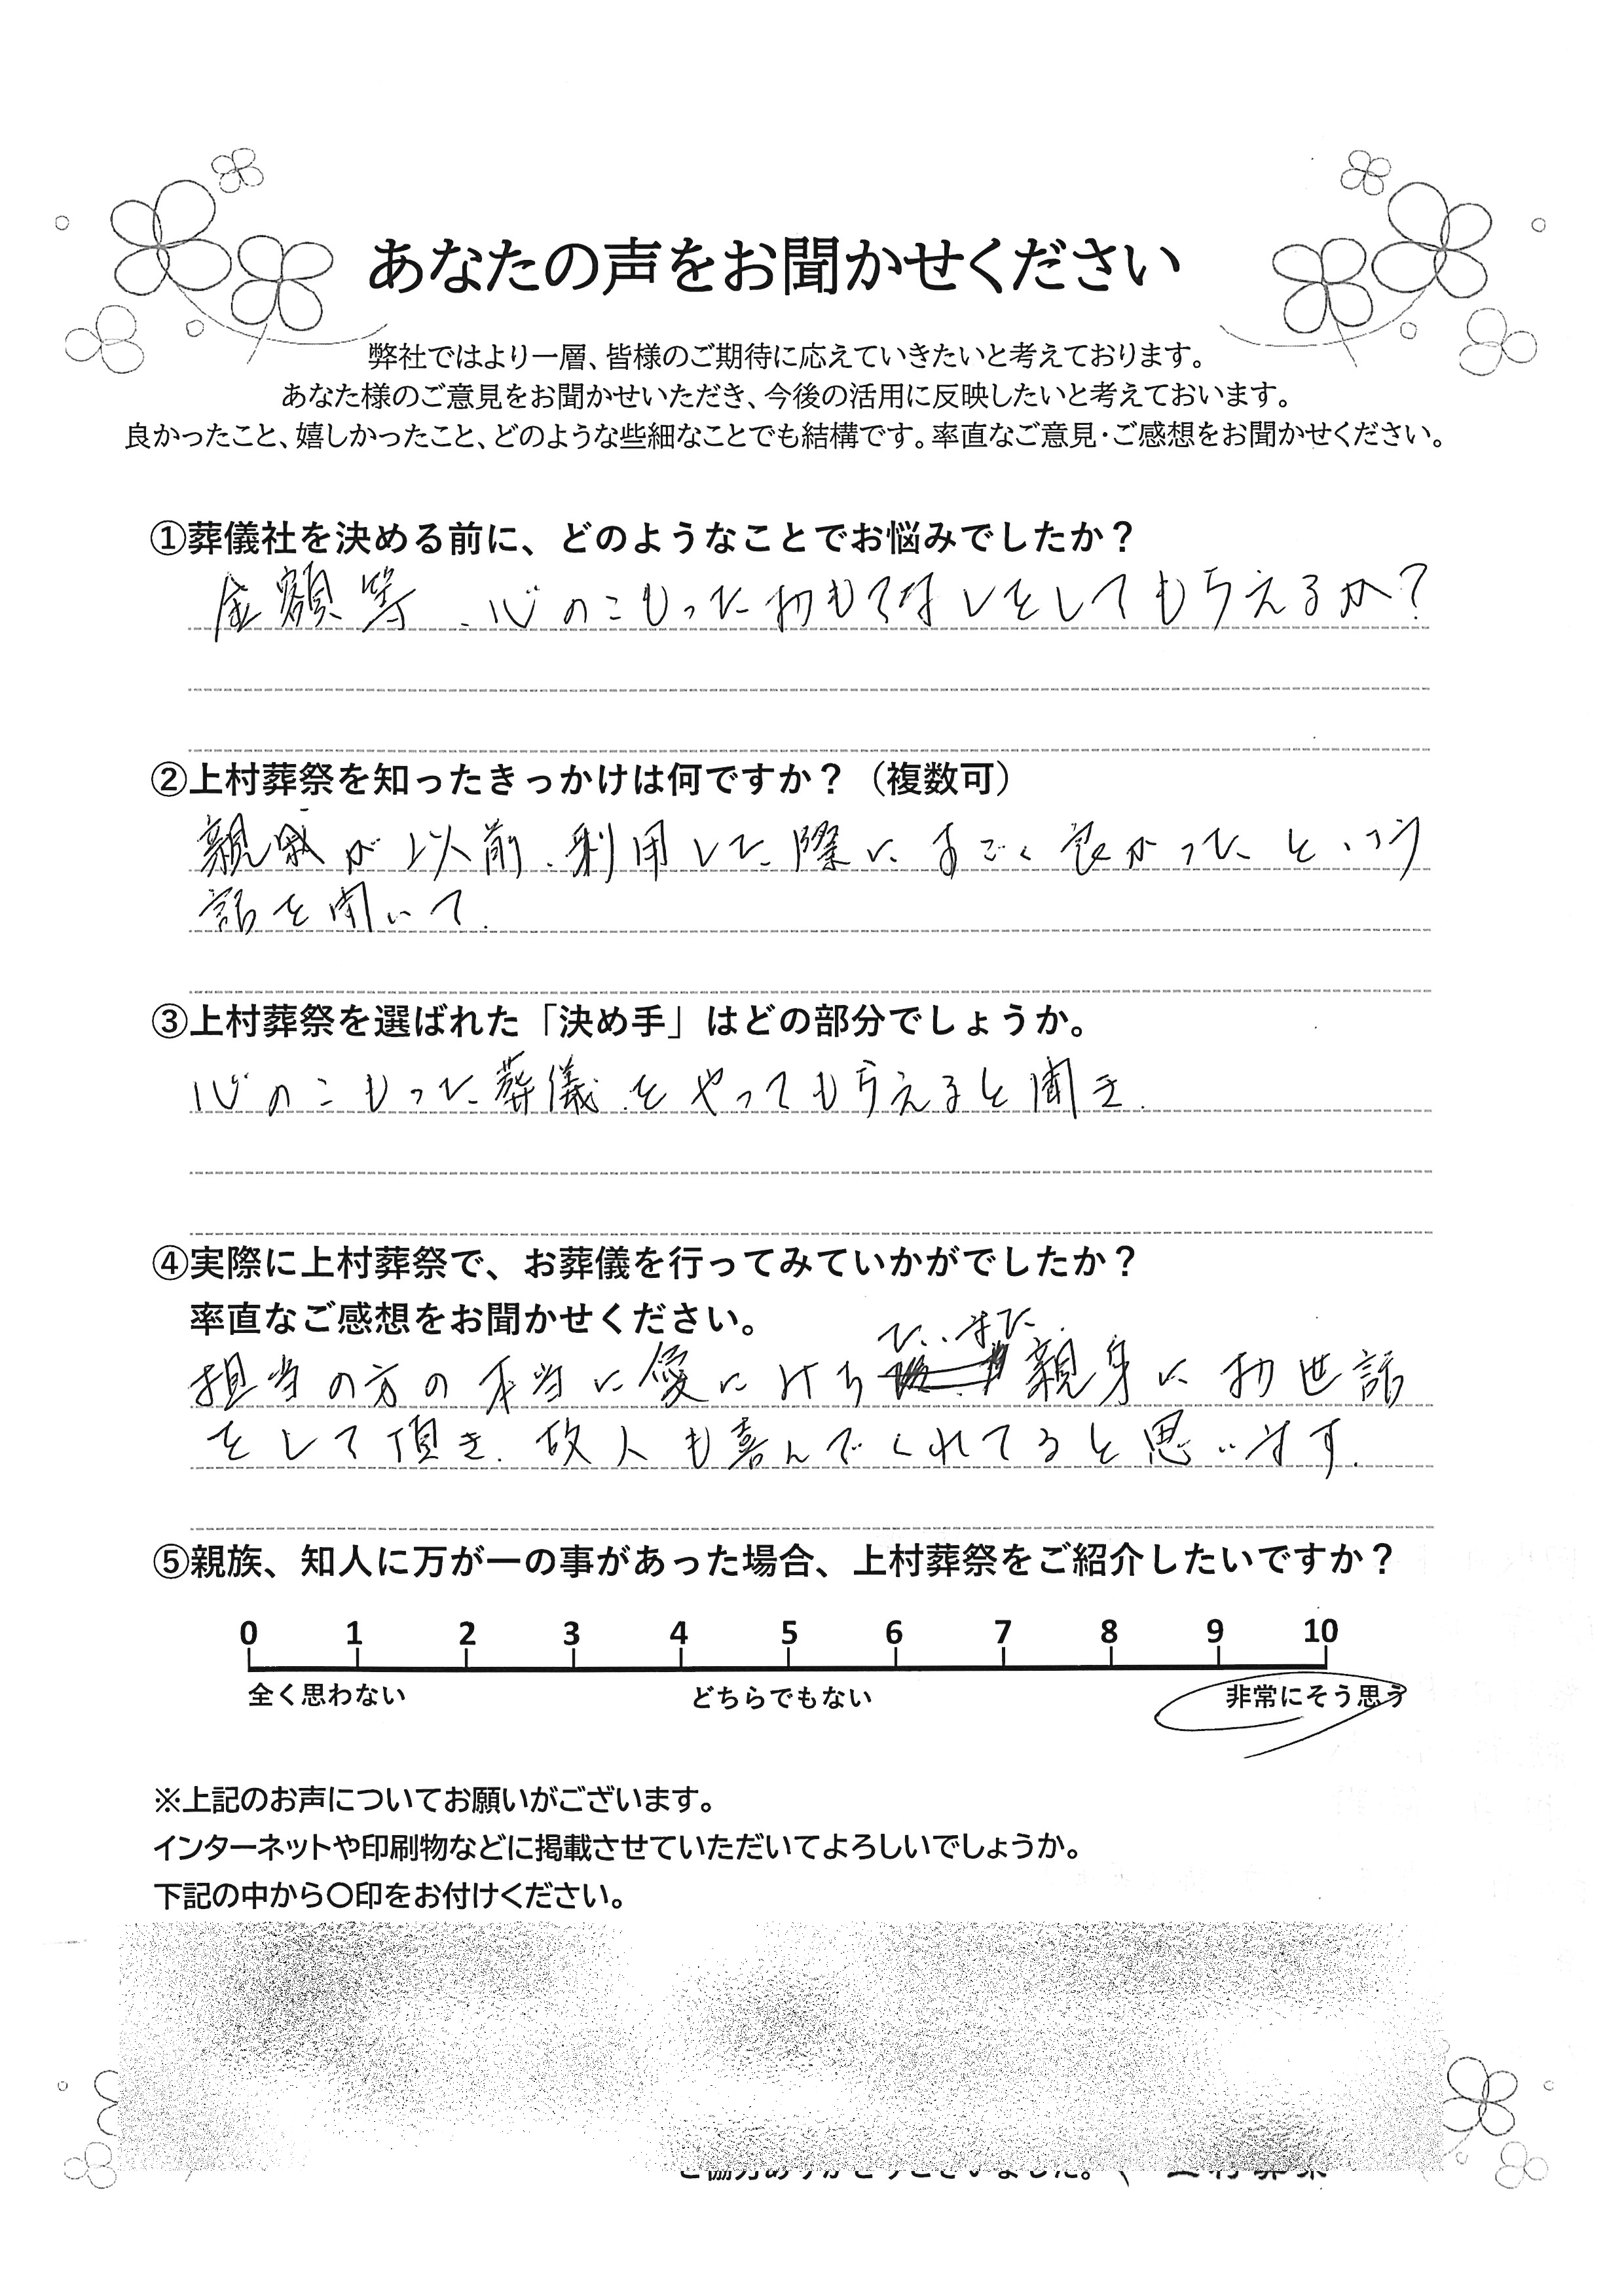 あなたの声をお聞かせください
弊社ではより一層、皆様のご期待に応えていきたいと考えております。
あなた様のご意見をお聞かせいただき、今後の活用に反映したいと考えておいます。
良かったこと、嬉しかったこと、どのような些細なことでも結構です。率直なご意見・ご感想をお聞かせください。
①葬儀社を決める前に、どのようなことでお悩みでしたか？
金額等、心のこもったおもてなしをしてもらえるか?
②上村葬祭を知ったきっかけは何ですか？（複数可）
親戚が以前、利用した際にすごく良かったという
話を聞いて.
③上村葬祭を選ばれた「決め手」はどの部分でしょうか。
心のこもった葬儀をやってもらえると聞き.
④実際に上村葬祭で、お葬儀を行ってみていかがでしたか？
率直なご感想をお聞かせください。
担当の方の本当に優に 親身にお世話
をして頂き、故人も喜んでくれてると思います.
⑤親族、知人に万が一の事があった場合、上村葬祭をご紹介したいですか？
0 1 2 3 4 5 6 7 8 9 10
全く思わない どちらでもない 非常にそう思う
※上記のお声についてお願いがございます。
インターネットや印刷物などに掲載させていただいてよろしいでしょうか。
下記の中から〇印をお付けください。
ご協力ありがとうございました。